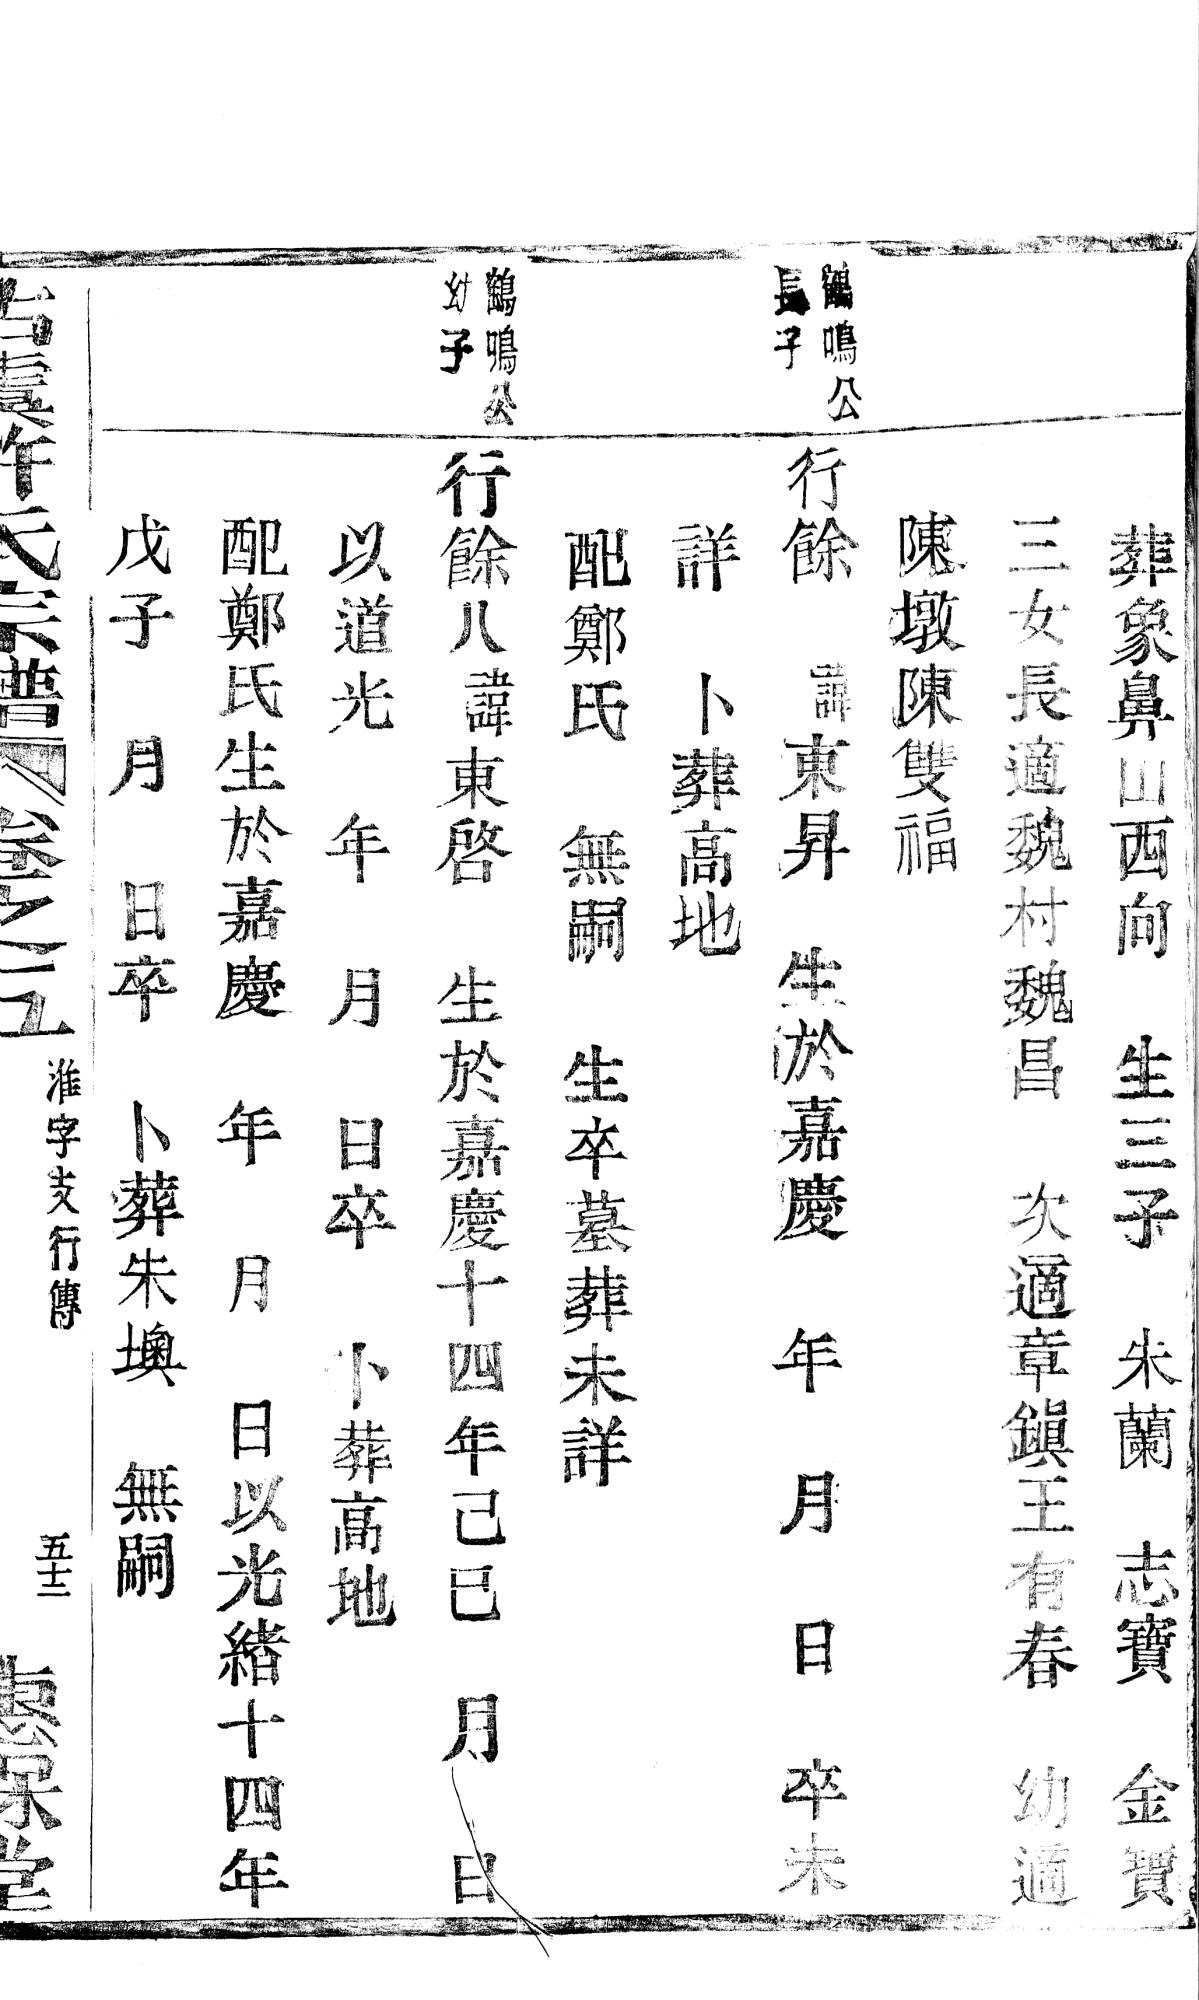 葬象鼻山西向　生三子　朱蘭　志寶　金寶
三女長適魏村魏昌　次適章鎭王有春　幼適
陳墩陳雙福
鶴鳴公
長子
行餘　諱東昇　生於嘉慶　年　月　日　卒未
詳　卜葬高地
配鄭氏　無嗣　生卒墓葬未詳
鶴鳴公
幼子
行餘八諱東啓　生於嘉慶十四年己巳　月　日
以道光　年　月　日卒　卜葬高地
配鄭氏生於嘉慶　年　月　日以光緒十四年
戊子　月　日卒　卜葬朱墺　無嗣
古虞許氏宗譜　卷之五
淮字支行傳
五十二
惠保堂